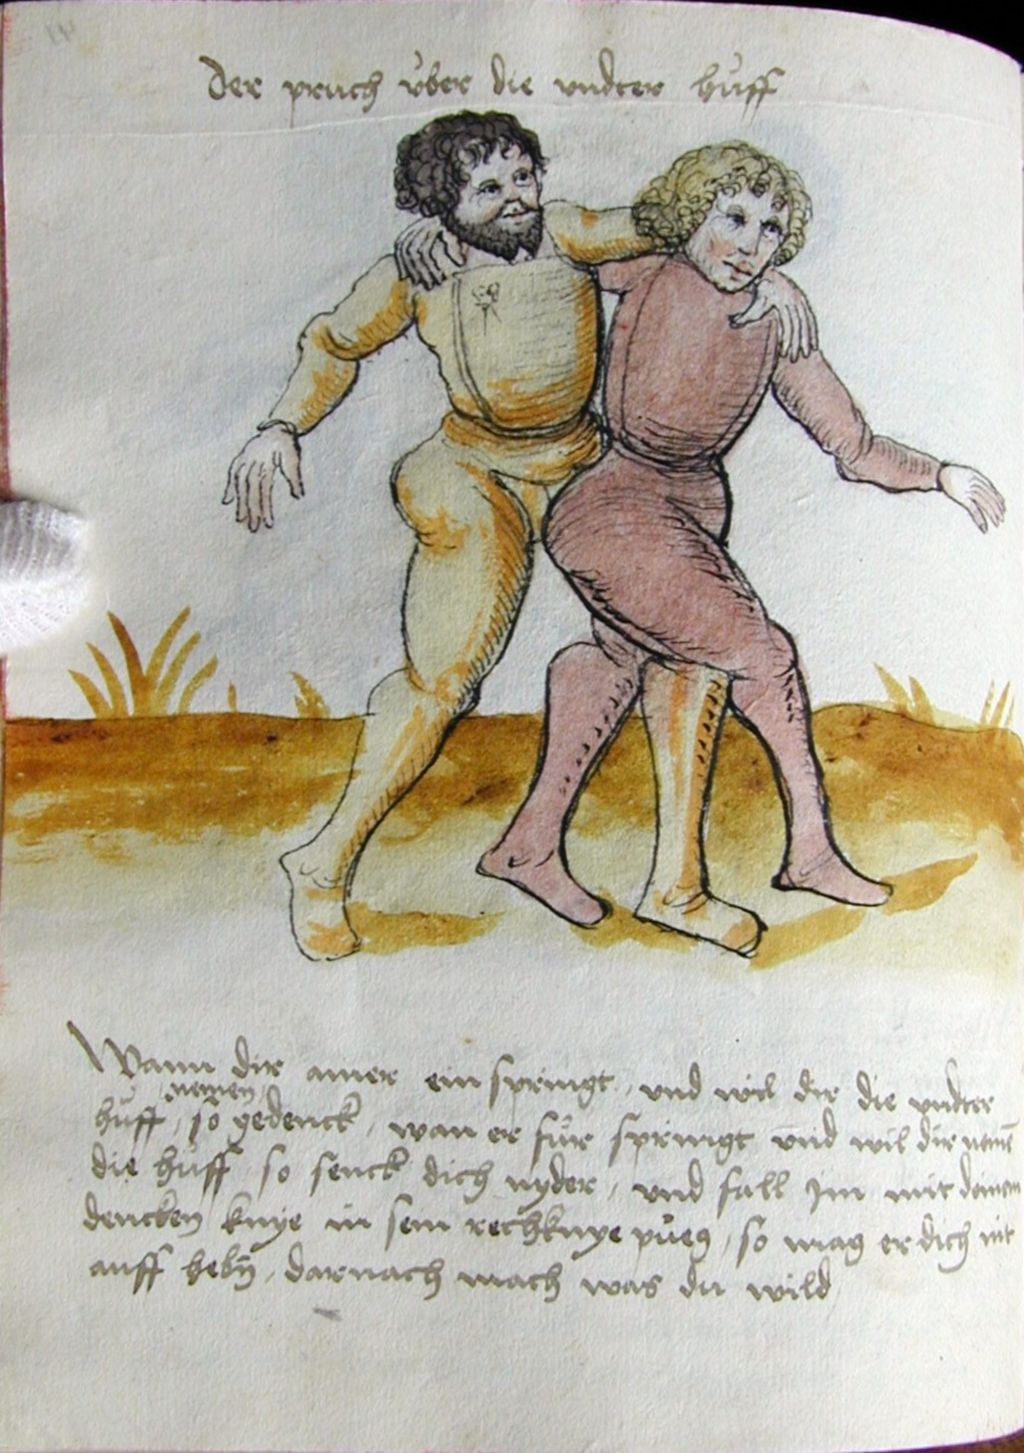 Der pruch vber die vndter huff
Wann dir ainer ein springt, vnd wil dir die vndter
nemen
huff, so gedenck, wan er für springt vnd wil dir nemē
die huff so senck dich nyder, vnd fall jm mit deinem
dencken knye in sein rechknye pueg, so mag er dich nit
auff hebn̄, darnach mach was du wild